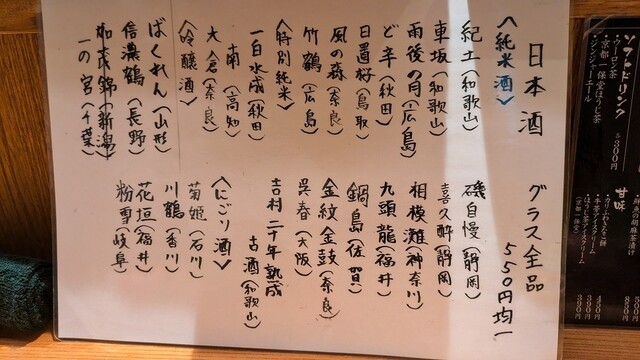 日本酒 グラス全品
五五〇円均一
〈純米酒〉
紀土（和歌山）
車坂（和歌山）
雨後の月（広島）
ど辛（秋田）
日置桜（鳥取）
風の森（奈良）
竹鶴（広島）
〈特別純米〉
一白水成（秋田）
南（高知）
大倉（奈良）
〈吟醸酒〉
ばくれん（山形）
信濃鶴（長野）
加茂錦（新潟）
一の宮（千葉）
磯自慢（静岡）
喜久酔（静岡）
相模灘（神奈川）
九頭龍（福井）
鍋島（佐賀）
金紋金鼓（奈良）
呉春（大阪）
吉村二十年熟成
古酒（和歌山）
〈にごり酒〉
菊姫（石川）
川鶴（香川）
花垣（福井）
粉雪（岐阜）
ソフトドリンク
・ウーロン茶
・京都一保堂ほうじ茶
・ジンジャーエール
各300円
甘味